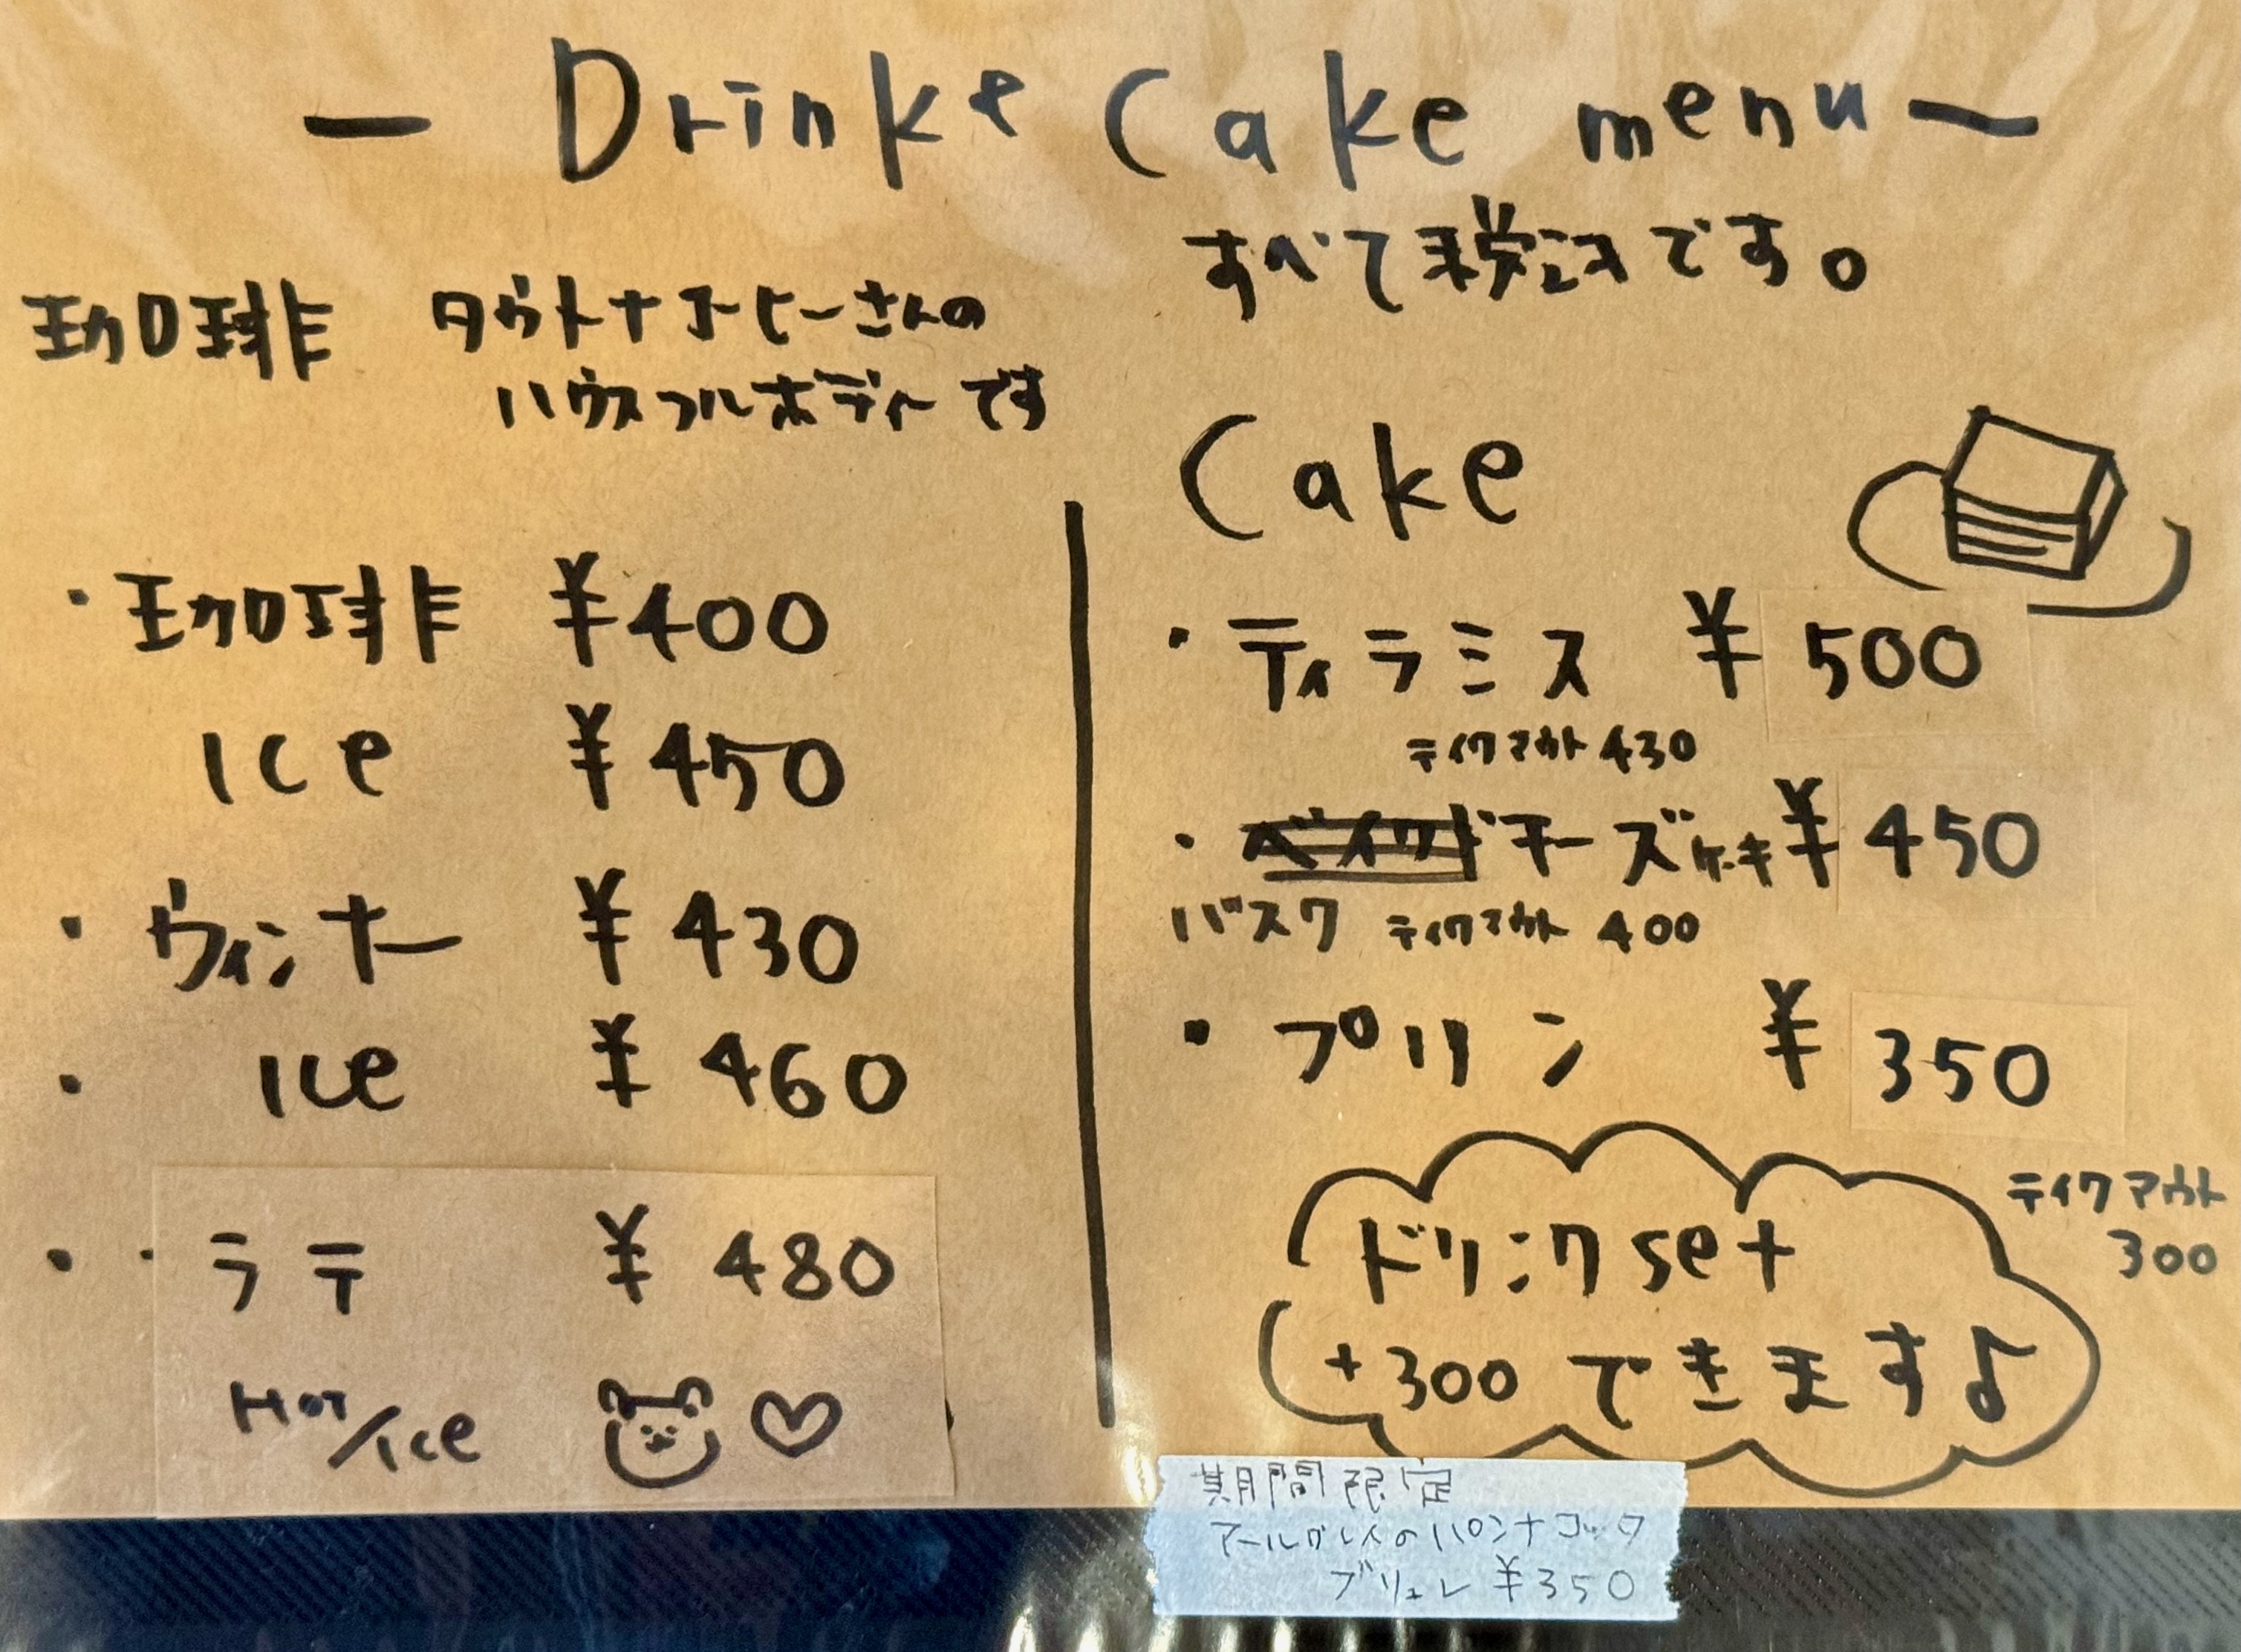 — Drink & Cake menu —
すべて税込です。
珈琲 タウトナコーヒーさんの
ハウスフルボディーです
・珈琲 ¥400
Ice ¥450
・ウィンナー ¥430
・ Ice ¥460
・・ラテ ¥480
Hot/Ice
Cake
・ティラミス ¥500
テイクアウト 430
・ベイクドチーズケーキ ¥450
バスク テイクアウト 400
・プリン ¥350
テイクアウト
300
ドリンクset
+300できます♪
期間限定
アールグレイのパンナコッタ
ブリュレ ¥350